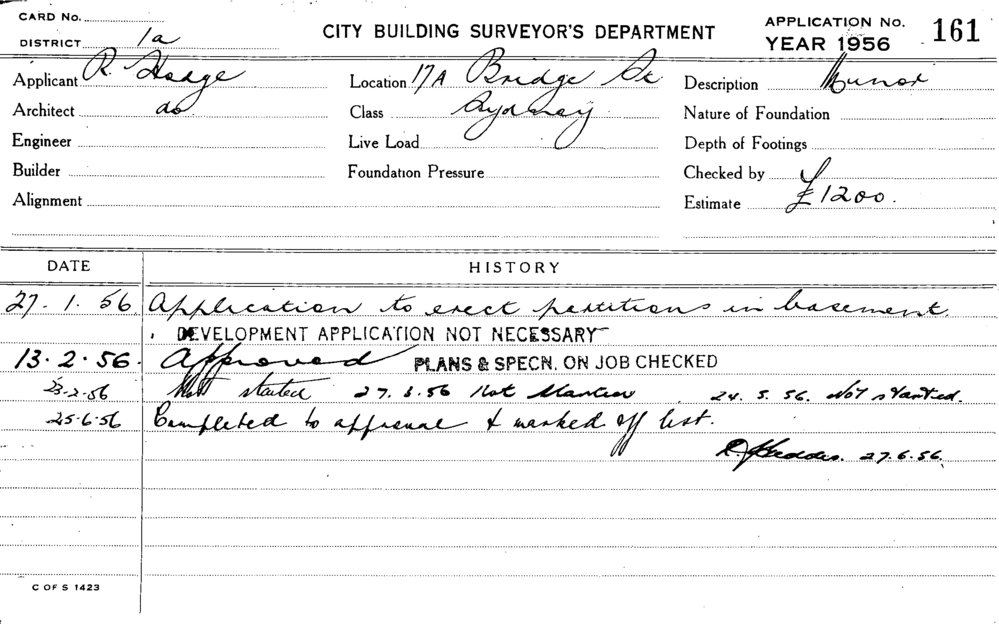 CARD No.
DISTRICT 1a
CITY BUILDING SURVEYOR'S DEPARTMENT
APPLICATION No. 161
YEAR 1956
Applicant R. Hodge
Location 17A Bridge St
Description Minor
Architect do
Class Sydney
Nature of Foundation
Engineer
Live Load
Depth of Footings
Builder
Foundation Pressure
Checked by
Alignment
Estimate £1200.
DATE HISTORY
27. 1. 56 Application to erect partitions in basement.
DEVELOPMENT APPLICATION NOT NECESSARY
13. 2. 56. Approved PLANS & SPECN. ON JOB CHECKED
Not started 56 Not started 24. 5. 56. Not started.
25-6-56 Completed to approval & marked off list.
27.6.56.
C OF S 1423